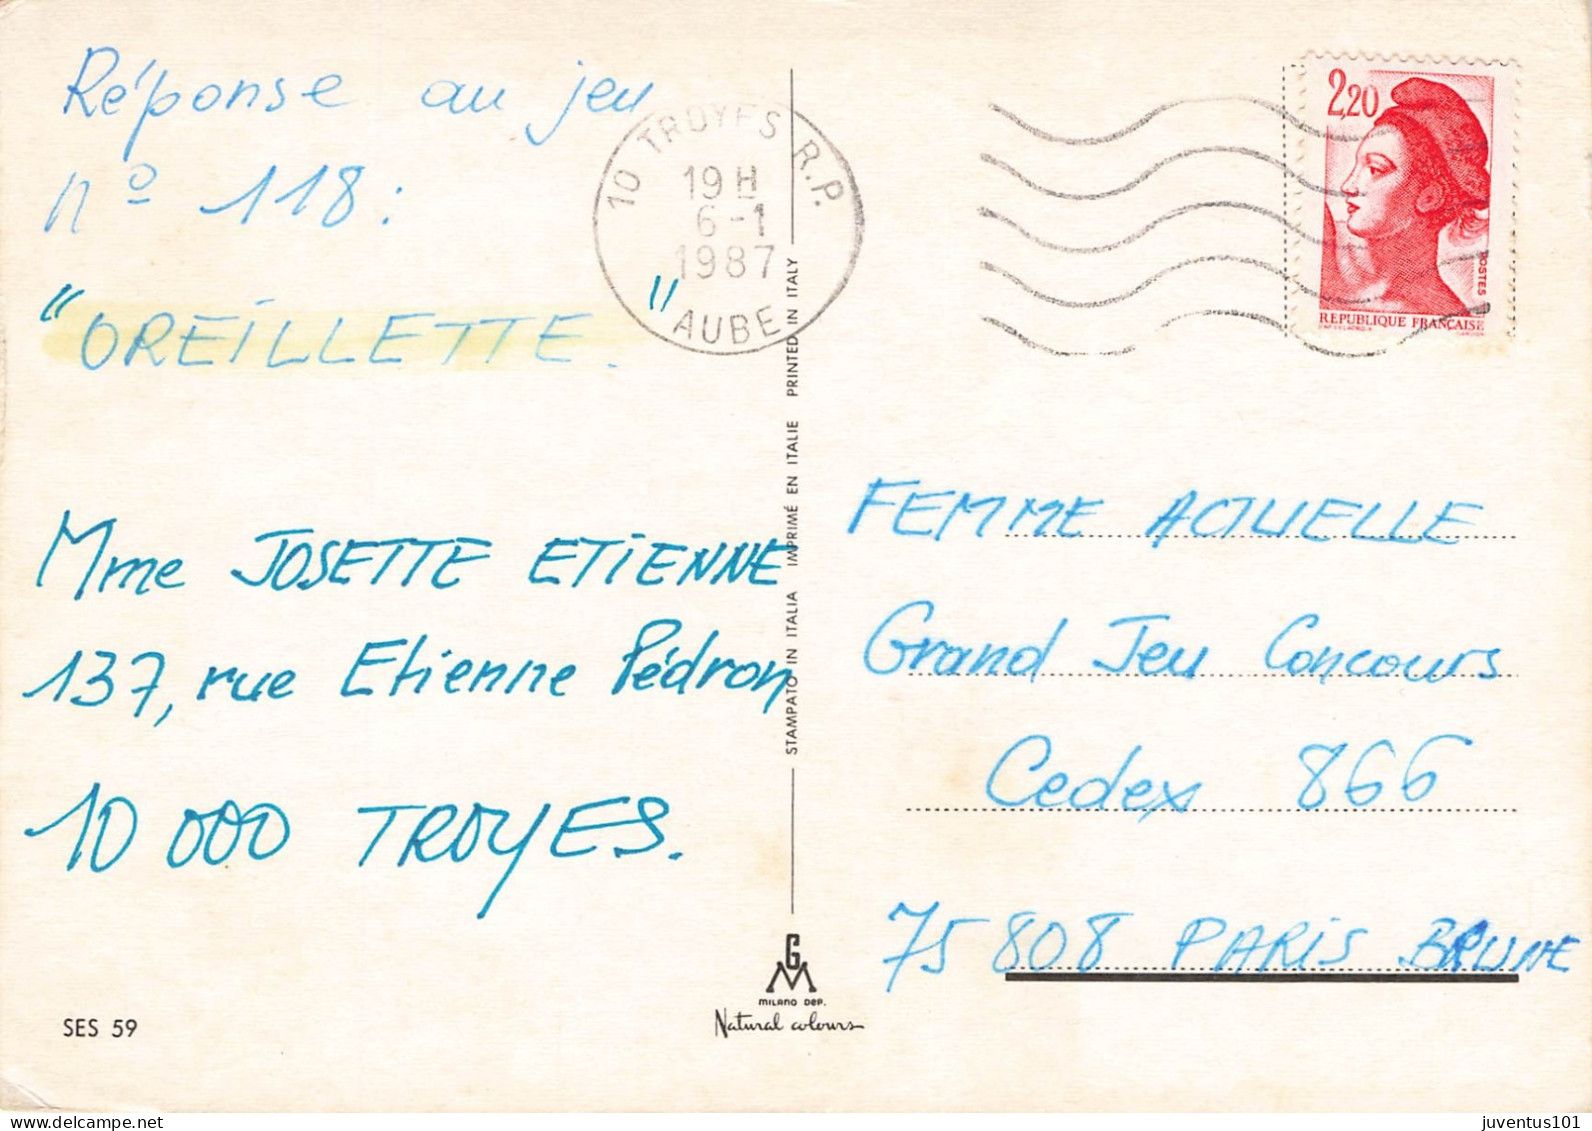 Réponse au jeu
nº 118 :
"OREILLETTE."
Mme JOSETTE ETIENNE
137, rue Etienne Pédron
10 000 TROYES.
SES 59
10 TROYES R.P.
19 H
6 - 1
1987
AUBE
STAMPATO IN ITALIA IMPRIMÉ EN ITALIE PRINTED IN ITALY
GM
MILANO DEP.
Natural colours
2,20
POSTES
REPUBLIQUE FRANÇAISE
FEMME ACTUELLE
Grand Jeu Concours
Cedex 866
75 808 PARIS BRUNE
juventus101